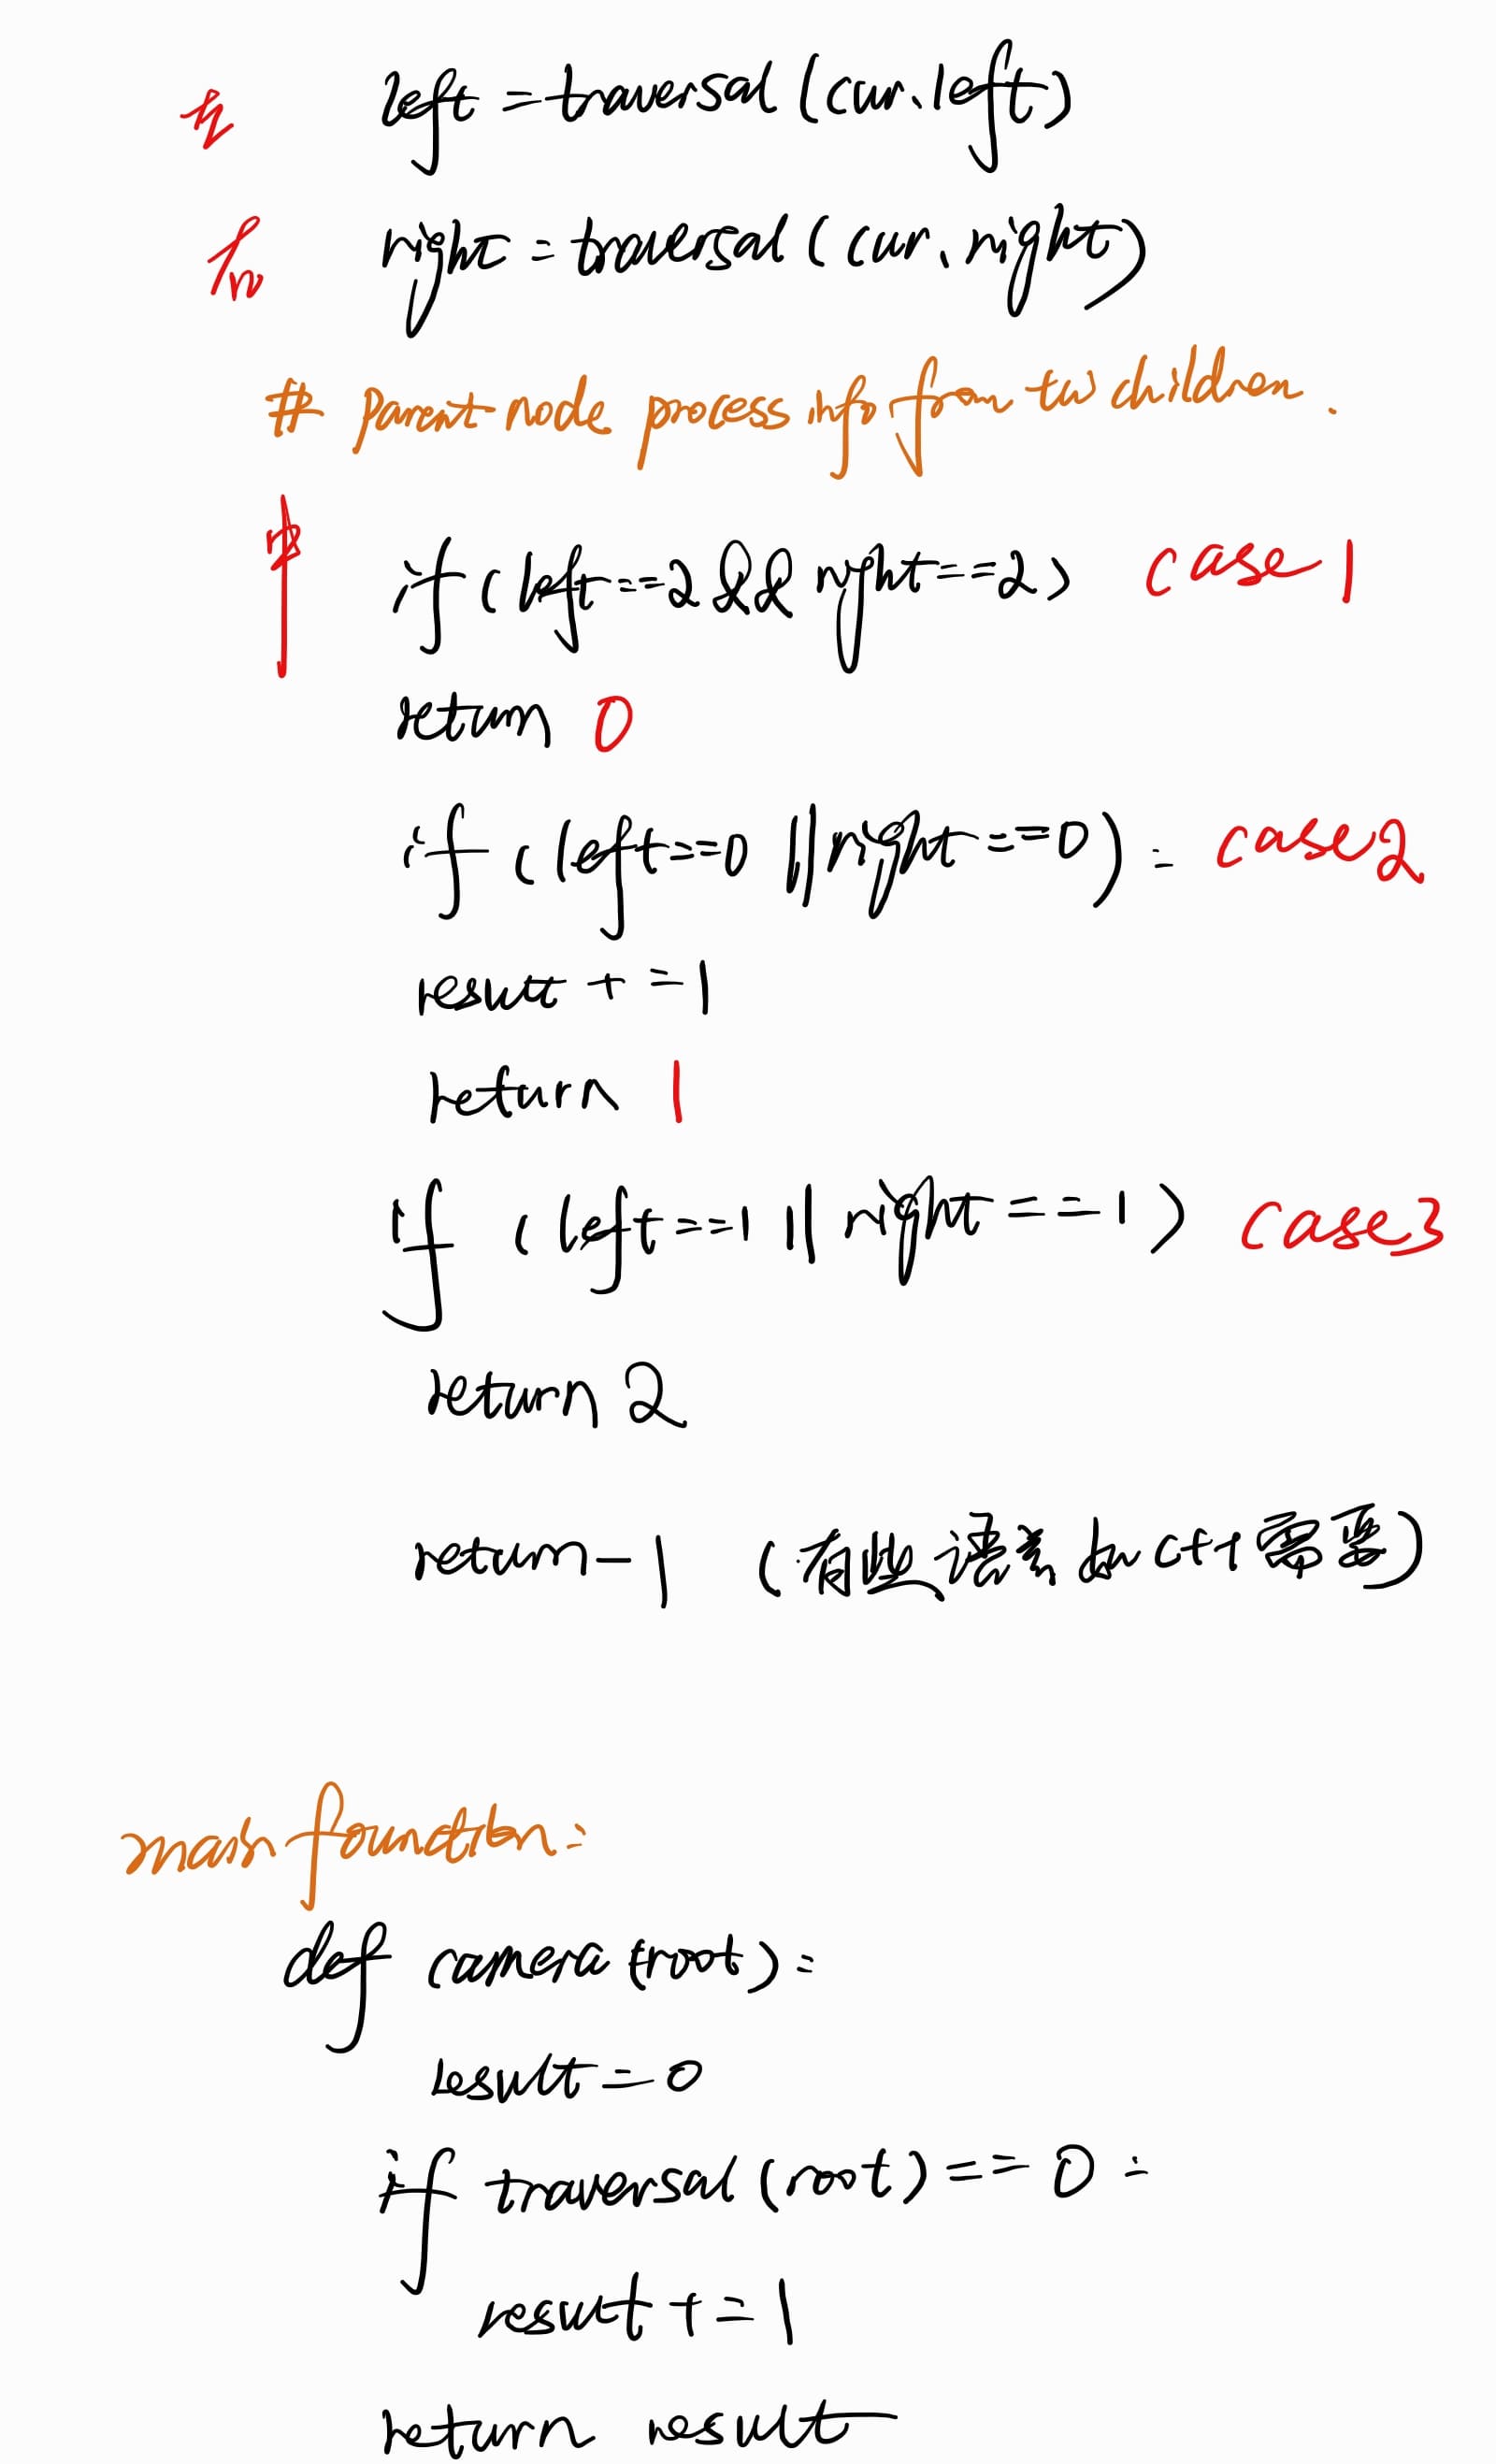 左 left = traversal (cur. left)
右 right = traversal (cur. right)
# parent node process info from two children.
中 if (left==2 && right==2) case 1
return 0
if (left==0 || right ==0): case2
result +=1
return 1
if (left==1 || right ==1) case3
return 2
return -1 (有些语言如 C++ 需要)
main function:
def camera (root):
result = 0
if traversal (root) == 0 :
result +=1
return result